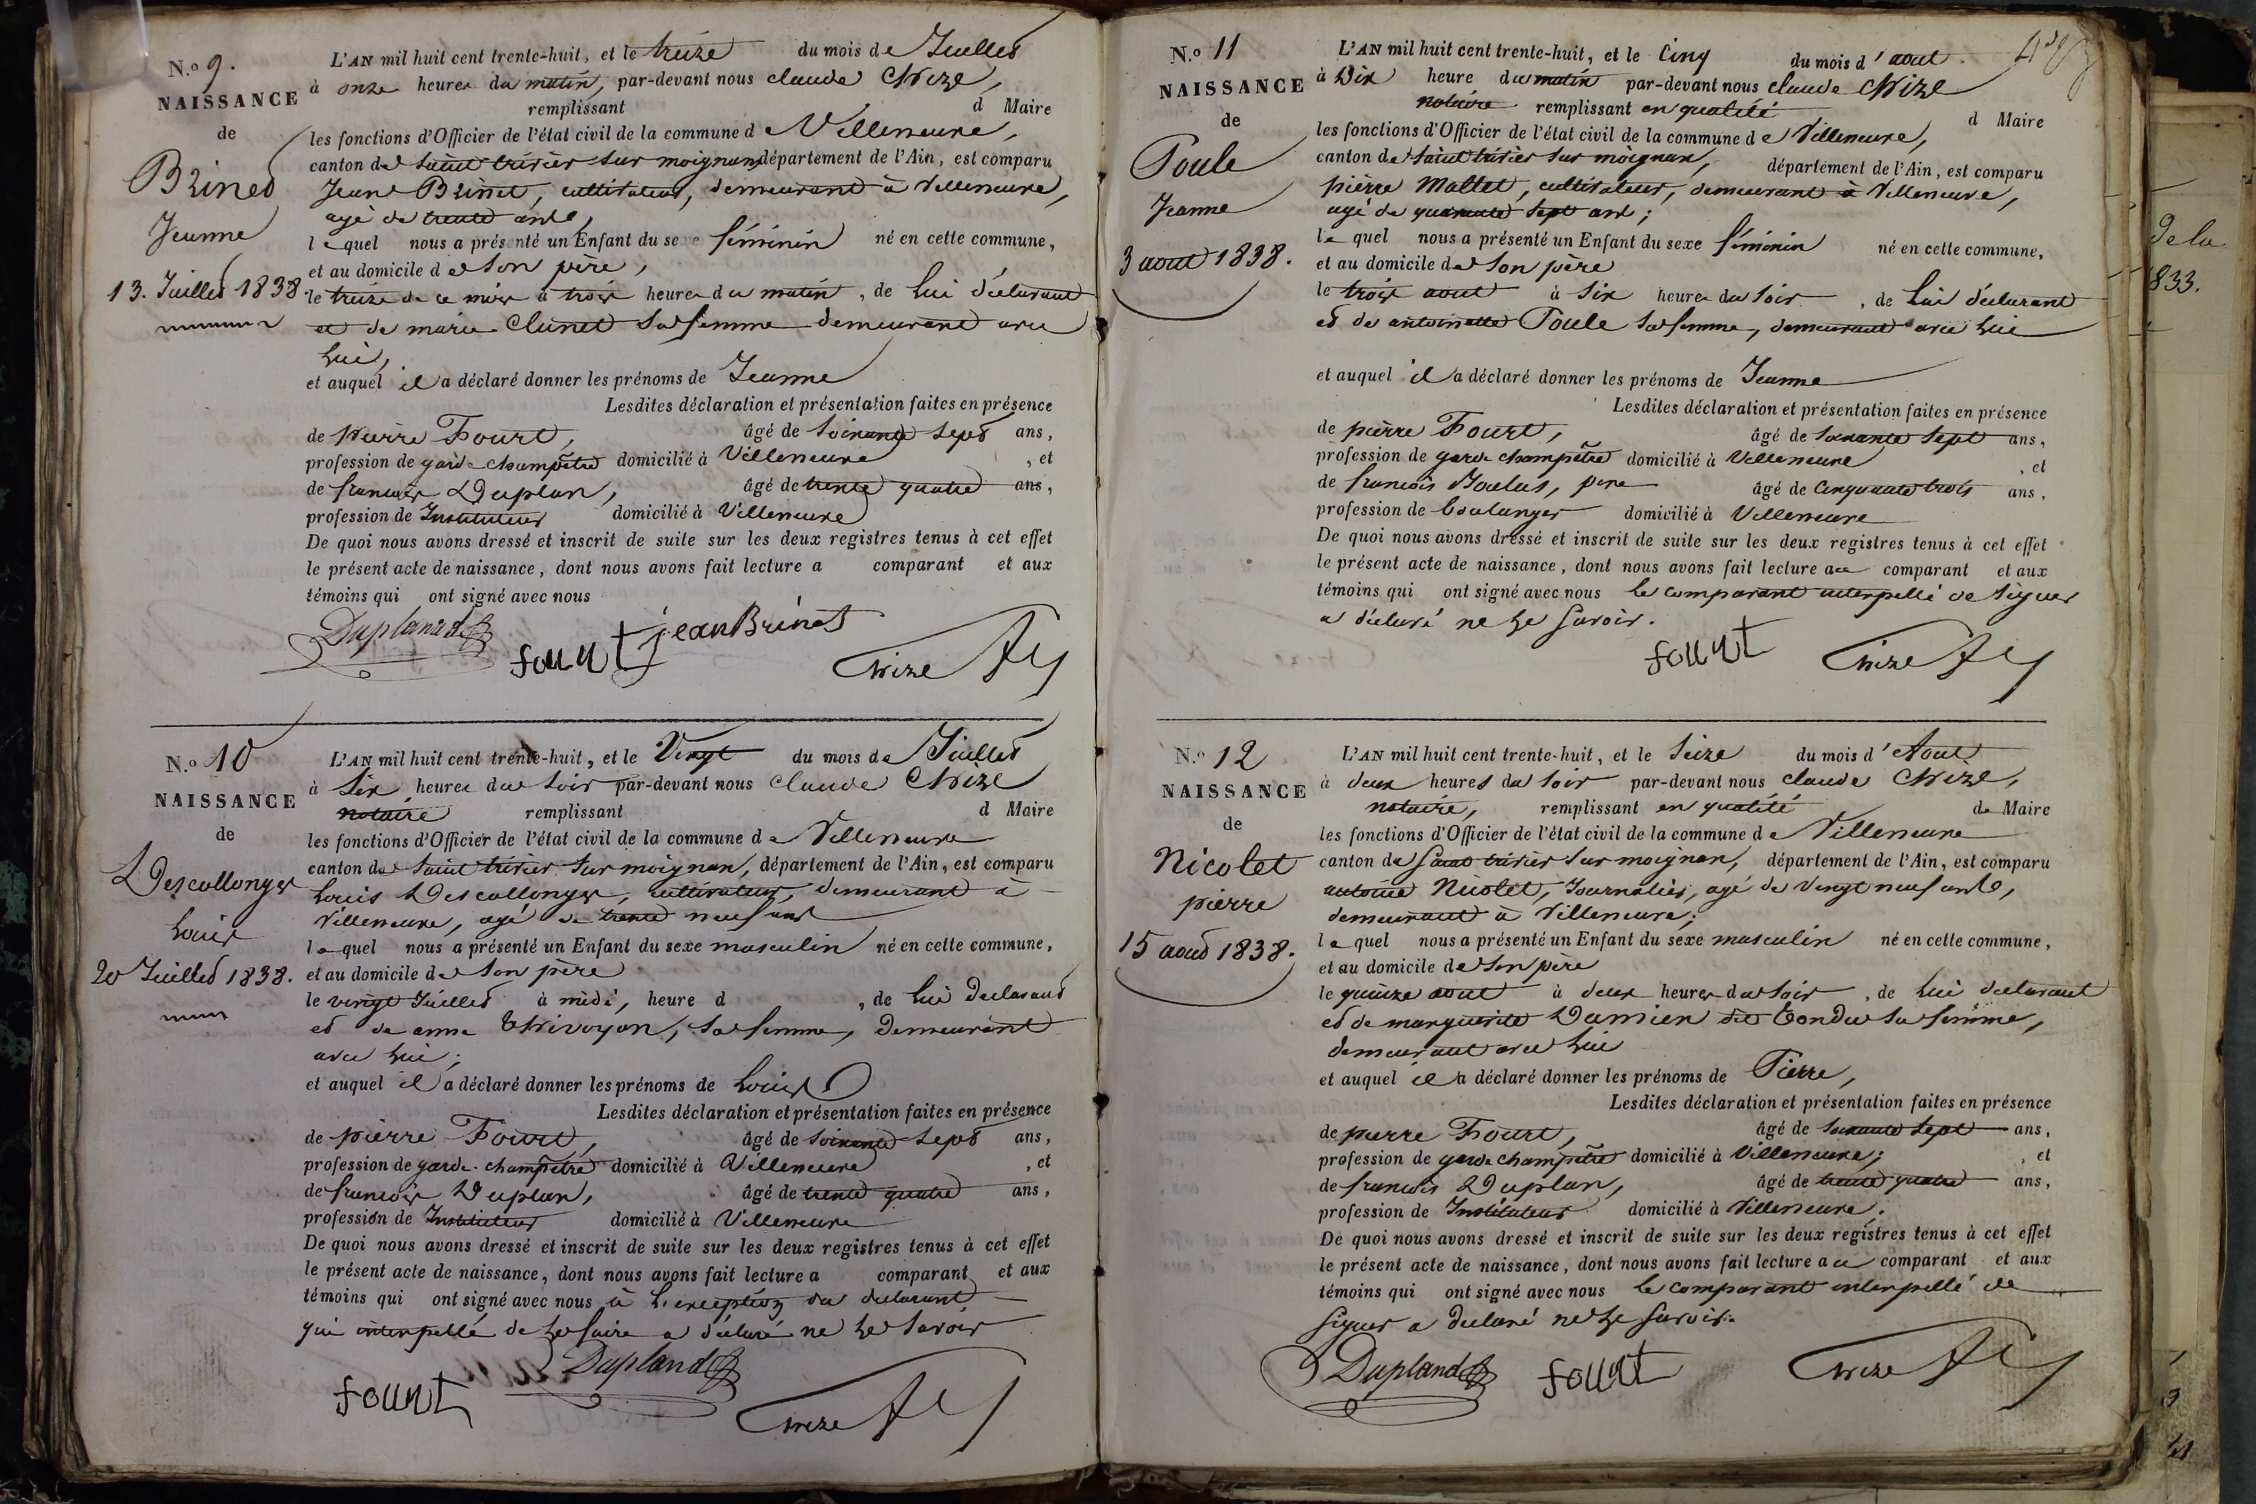 N.º 9.
NAISSANCE
de
Brinet
Jeanne
13. Juillet 1838
L'AN mil huit cent trente-huit, et le treize du mois de Juillet
à onze heures du matin, par-devant nous claude Chize,
remplissant d Maire
les fonctions d'Officier de l'état civil de la commune de Villeneuve,
canton de saint trivier sur moignans, département de l'Ain, est comparu
Jean Brinet, cultivateur, demeurant à Villeneuve,
agé de trente ans,
lequel nous a présenté un Enfant du sexe féminin né en cette commune,
et au domicile de son père,
le treize de ce mois à trois heures du matin, de lui déclarant
et de marie Clunet sa femme demeurant avec
lui,
et auquel il a déclaré donner les prénoms de Jeanne
Lesdites déclaration et présentation faites en présence
de pierre Fourt, âgé de soixante sept ans,
profession de garde champêtre domicilié à Villeneuve, et
de francois Duplan, âgé de trente quatre ans,
profession de Instituteur domicilié à Villeneuve
De quoi nous avons dressé et inscrit de suite sur les deux registres tenus à cet effet
le présent acte de naissance, dont nous avons fait lecture a comparant et aux
témoins qui ont signé avec nous
Dupland
fourt
jean Brinet
Chize
N.º 10
NAISSANCE
de
Descollonges
Louis
20 Juillet 1838.
L'AN mil huit cent trente-huit, et le Vingt du mois de Juillet
à Six heures du soir par-devant nous Claude Chize
notaire remplissant d Maire
les fonctions d'Officier de l'état civil de la commune de Villeneuve
canton de saint trivier sur moignans, département de l'Ain, est comparu
Louis Descollonges, cultivateur, demeurant à
Villeneuve, agé de trente neuf ans
lequel nous a présenté un Enfant du sexe masculin né en cette commune,
et au domicile de son père
le vingt Juillet à midi, heure d , de lui declarant
et de anne Thivoyon, sa femme, demeurant
avec lui;
et auquel il a déclaré donner les prénoms de Louis
Lesdites déclaration et présentation faites en présence
de pierre Fourt, âgé de soixante sept ans,
profession de garde champêtre domicilié à Villeneuve, et
de francois Duplan, âgé de trente quatre ans,
profession de Instituteur domicilié à Villeneuve
De quoi nous avons dressé et inscrit de suite sur les deux registres tenus à cet effet
le présent acte de naissance, dont nous avons fait lecture a comparant et aux
témoins qui ont signé avec nous à l'exception du declarant
qui interpellé de le faire a déclaré ne le savoir
fourt
Dupland
Chize
N.º 11
NAISSANCE
de
Poule
Jeanne
3 aout 1838.
L'AN mil huit cent trente-huit, et le Cinq du mois d'aout
à Dix heure du matin par-devant nous claude Chize
notaire remplissant en qualité d Maire
les fonctions d'Officier de l'état civil de la commune de Villeneuve,
canton de saint trivier sur moignans, département de l'Ain, est comparu
pierre Mallet, cultivateur, demeurant à Villeneuve,
agé de quarante sept ans;
lequel nous a présenté un Enfant du sexe féminin né en cette commune,
et au domicile de son père
le trois aout à six heures du soir, de lui déclarant
et de antoinette Poule sa femme, demeurant avec lui
et auquel il a déclaré donner les prénoms de Jeanne
Lesdites déclaration et présentation faites en présence
de pierre Fourt, âgé de soixante sept ans,
profession de garde champêtre domicilié à Villeneuve, et
de francois père âgé de Cinquante trois ans,
profession de boulanger domicilié à Villeneuve
De quoi nous avons dressé et inscrit de suite sur les deux registres tenus à cet effet
le présent acte de naissance, dont nous avons fait lecture au comparant et aux
témoins qui ont signé avec nous le comparant interpellé de signer
a déclaré ne le savoir.
fourt
Chize
N.º 12
NAISSANCE
de
Nicolet
pierre
15 aout 1838.
L'AN mil huit cent trente-huit, et le Seize du mois d'Aout
à deux heures du soir par-devant nous claude Chize,
notaire, remplissant en qualité de Maire
les fonctions d'Officier de l'état civil de la commune de Villeneuve
canton de saint trivier sur moignans, département de l'Ain, est comparu
antoine Nicolet, Journalier, agé de vingt neuf ans,
demeurant à Villeneuve;
lequel nous a présenté un Enfant du sexe masculin né en cette commune,
et au domicile de son père
le quinze aout à deux heures du soir, de lui déclarant
et de marguerite Damien dit Tondu sa femme,
demeurant avec lui
et auquel il a déclaré donner les prénoms de Pierre,
Lesdites déclaration et présentation faites en présence
de pierre Fourt, âgé de soixante sept ans,
profession de garde champêtre domicilié à Villeneuve; , et
de francois Duplan, âgé de trente quatre ans,
profession de Instituteur domicilié à Villeneuve.
De quoi nous avons dressé et inscrit de suite sur les deux registres tenus à cet effet
le présent acte de naissance, dont nous avons fait lecture au comparant et aux
témoins qui ont signé avec nous le comparant interpellé de
signer a déclaré ne le savoir.
Dupland
fourt
Chize
de la
1833.